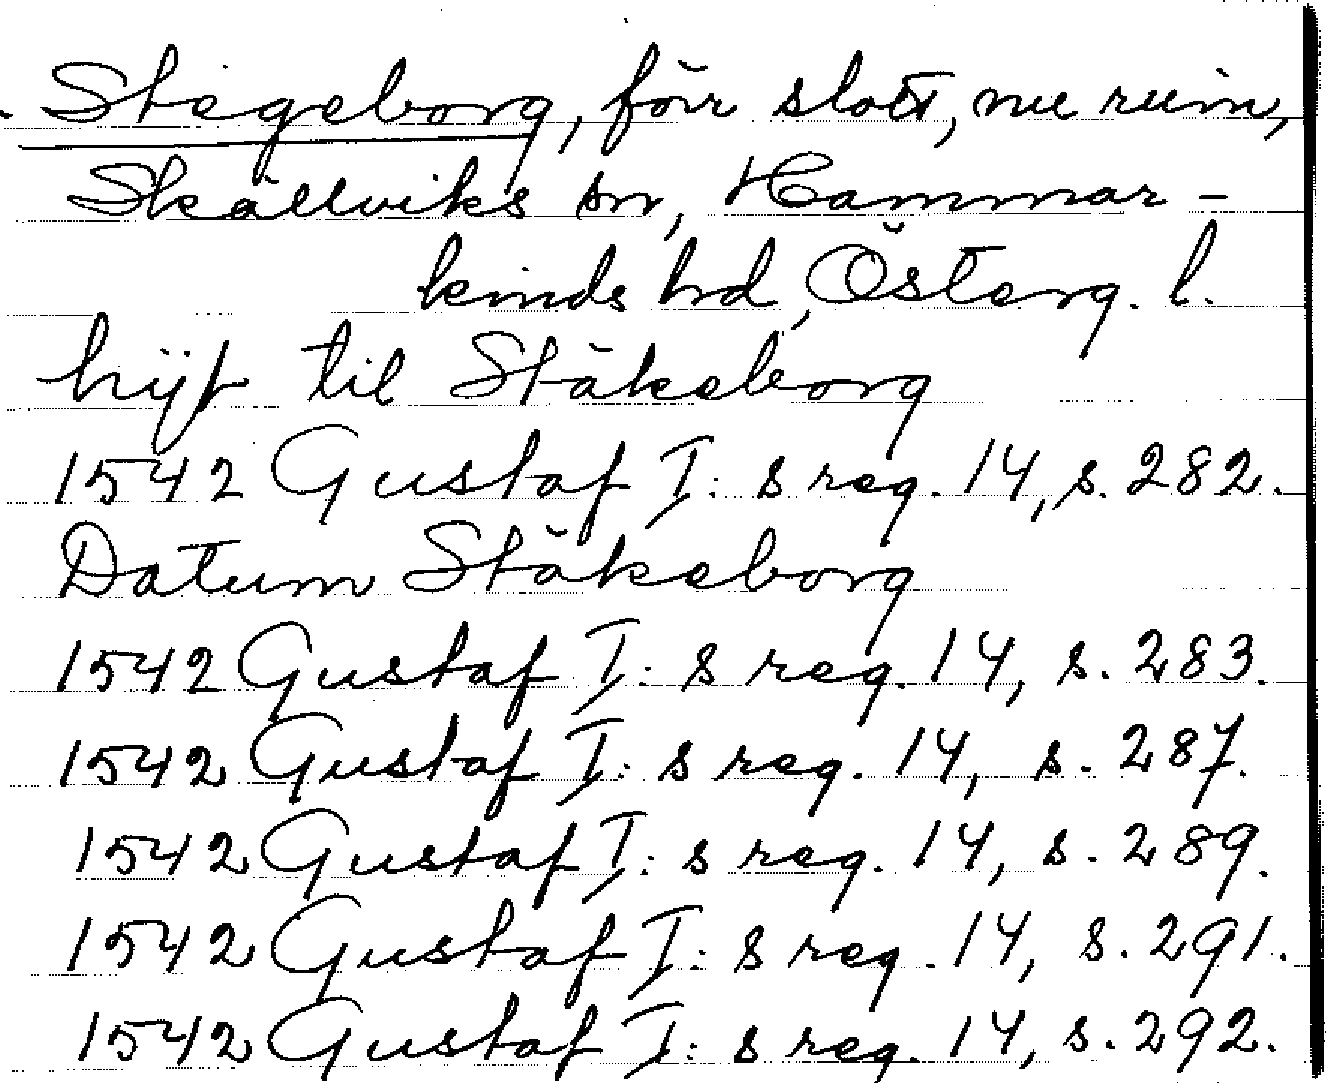 Stegeborg, förr slott, nu ruin,
Skällviks sn, Hammar-
kinds hd, Österg. l.
hijt til Stäkeborg
1542 Gustaf I:s reg. 14, s. 282.
Datum Stäkeborg
1542 Gustaf I:s reg. 14, s. 283.
1542 Gustaf I:s reg. 14, s. 287.
1542 Gustaf I:s reg. 14, s. 289.
1542 Gustaf I:s reg. 14, s. 291.
1542 Gustaf I:s reg. 14, s. 292.